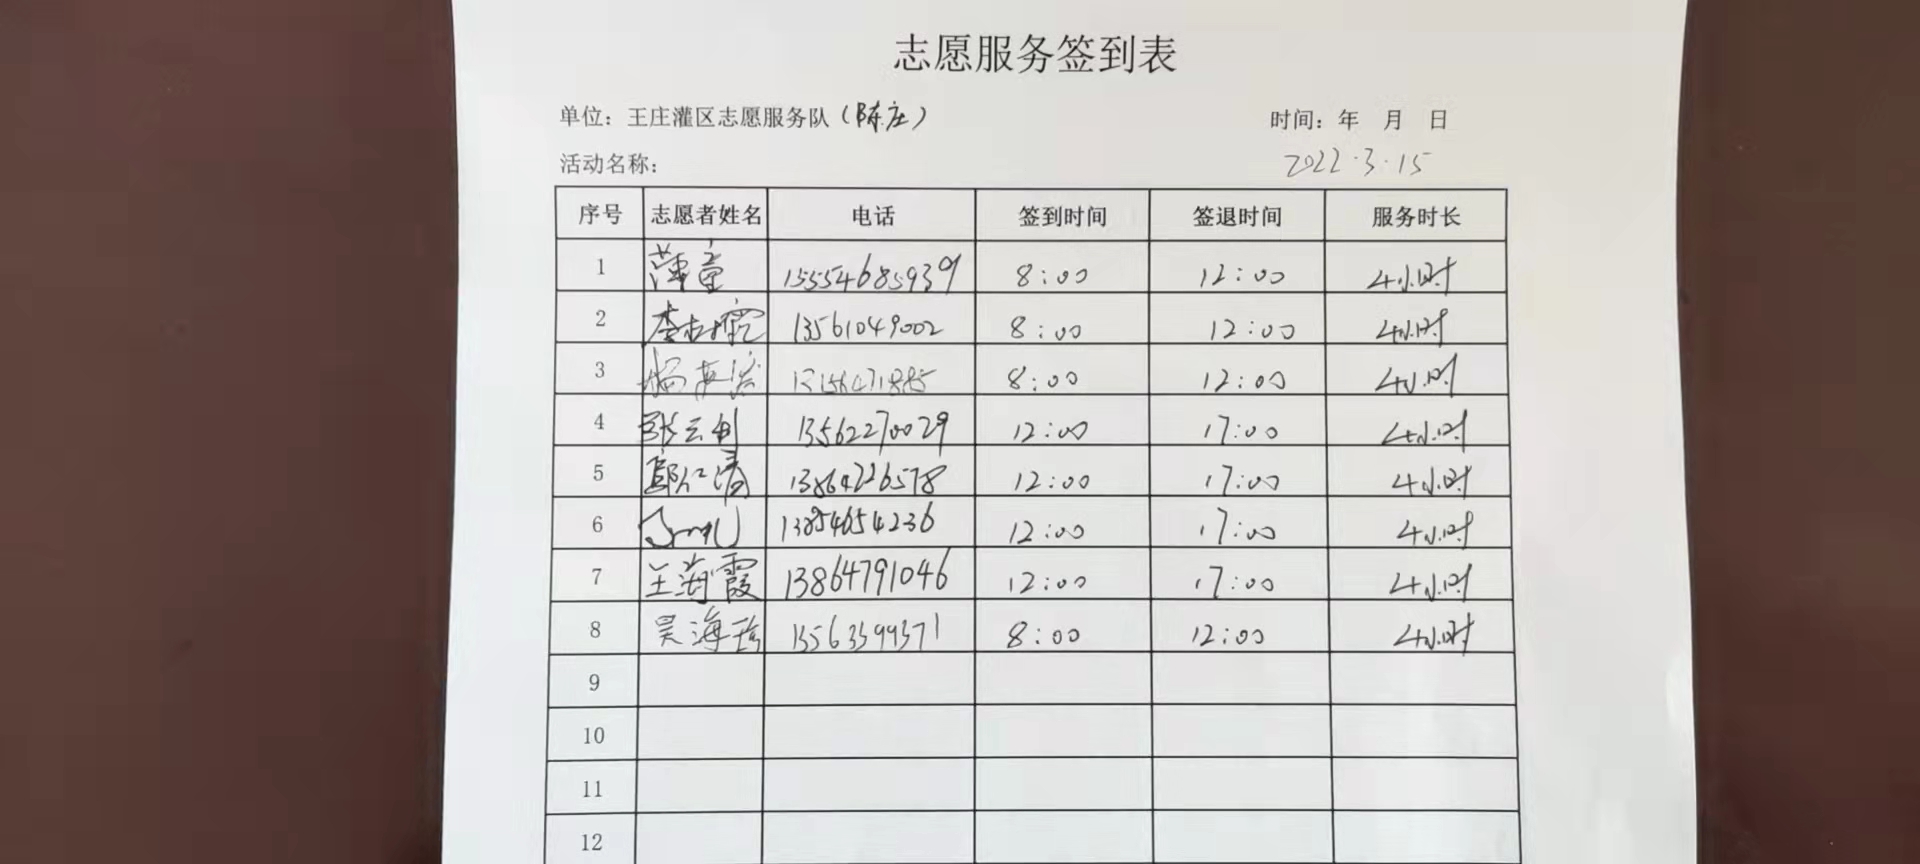 志愿服务签到表
单位：王庄灌区志愿服务队（陈庄） 时间：年 月 日
活动名称： 2022.3.15
序号 志愿者姓名 电话 签到时间 签退时间 服务时长
1 薄童 15554685939 8:00 12:00 4小时
2 13561049002 8:00 12:00 4小时
3 8:00 12:00 4小时
4 张云利 13562270029 12:00 17:00 4小时
5 13864226578 12:00 17:00 4小时
6 13854654236 12:00 17:00 4小时
7 王海霞 13864791046 12:00 17:00 4小时
8 吴海珍 13563399371 8:00 12:00 4小时
9
10
11
12